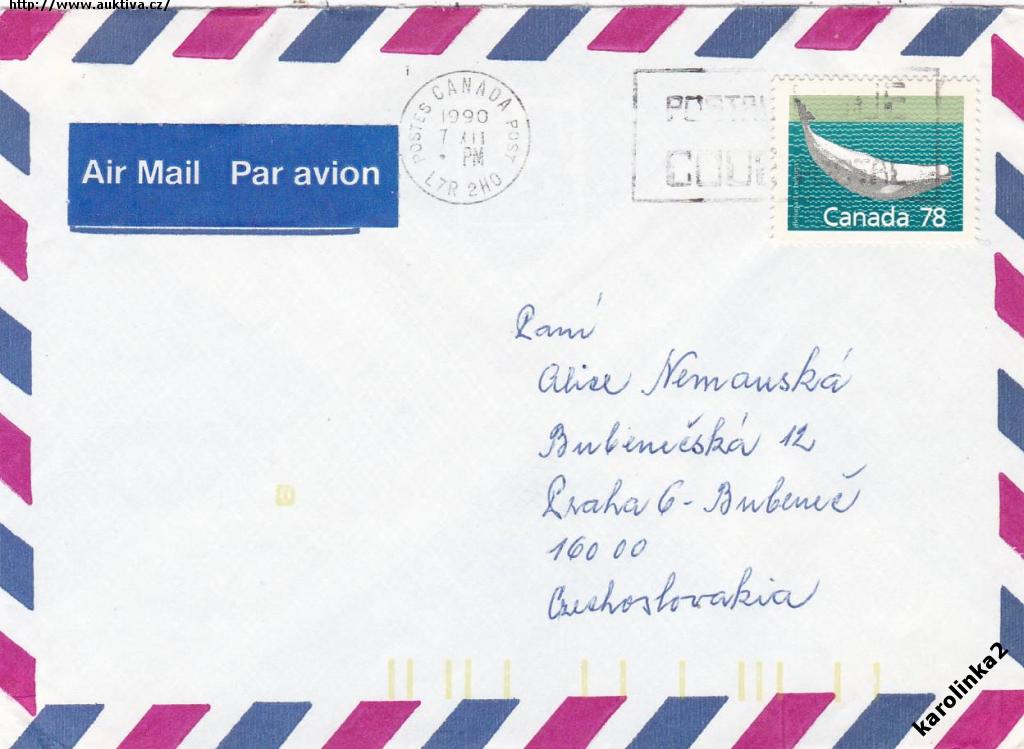 http://www.auktiva.cz/
Air Mail Par avion
POSTES CANADA POST
1990
7 XII
PM
L7R 2H0
POSTAL
Canada 78
Paní
Alice Nemanská
Bubenečská 12
Praha 6 - Bubeneč
160 00
Czechoslovakia
karolinka2